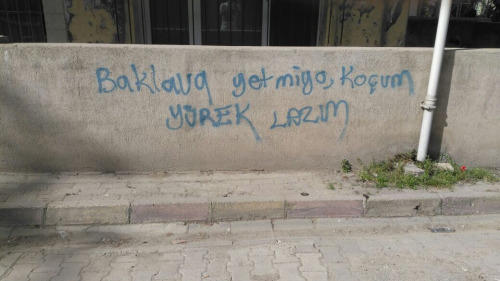 Baklava yetmiyo, Koçum
YÜREK LAZIM